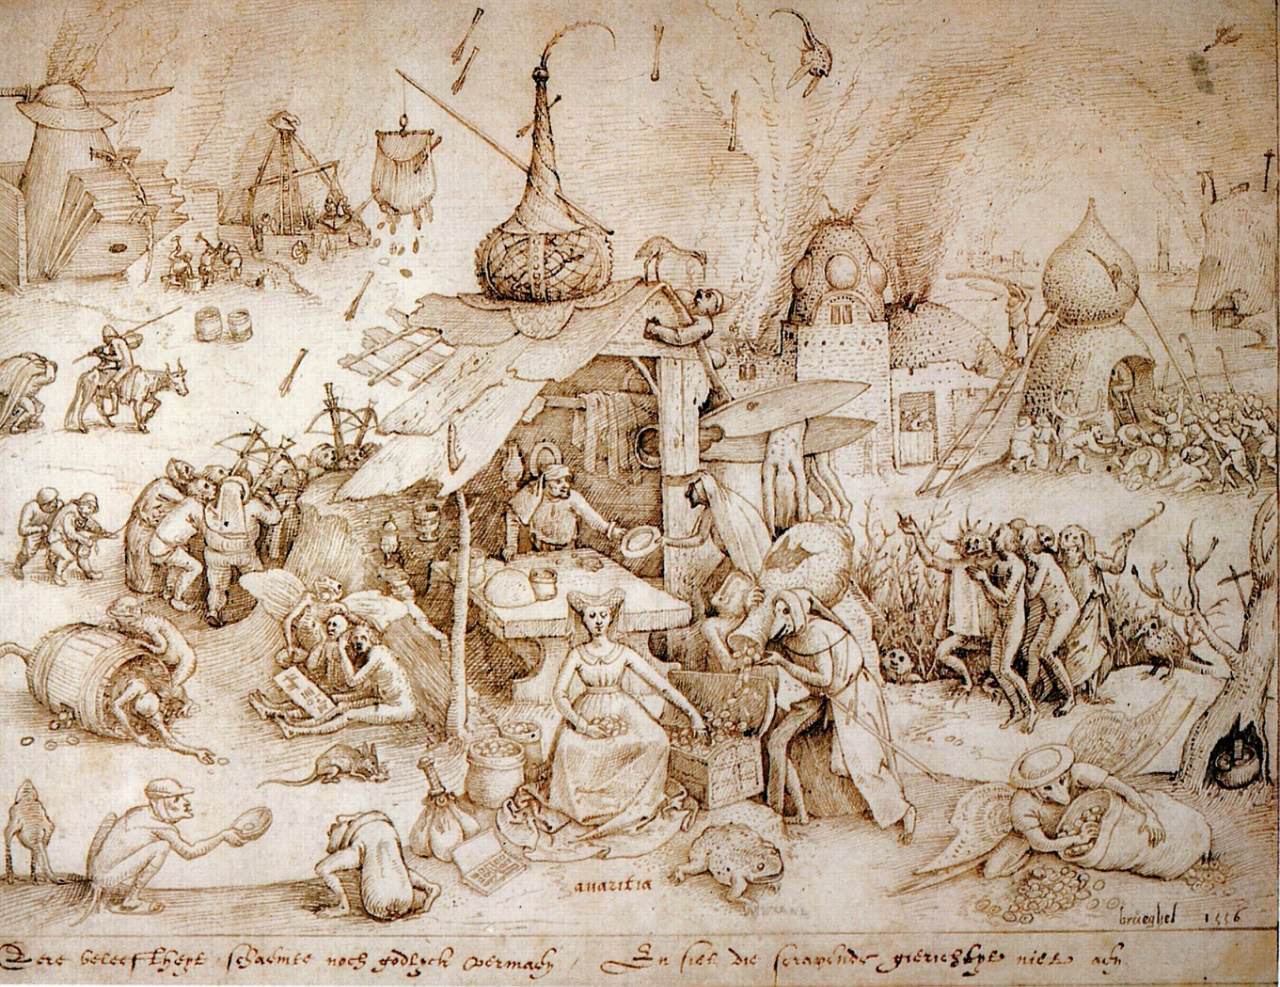 avaritia
brueghel 1556
Eere beleeftheyt schaemte noch godlyck vermaen En siet die scrapende gierichheyt niet aen